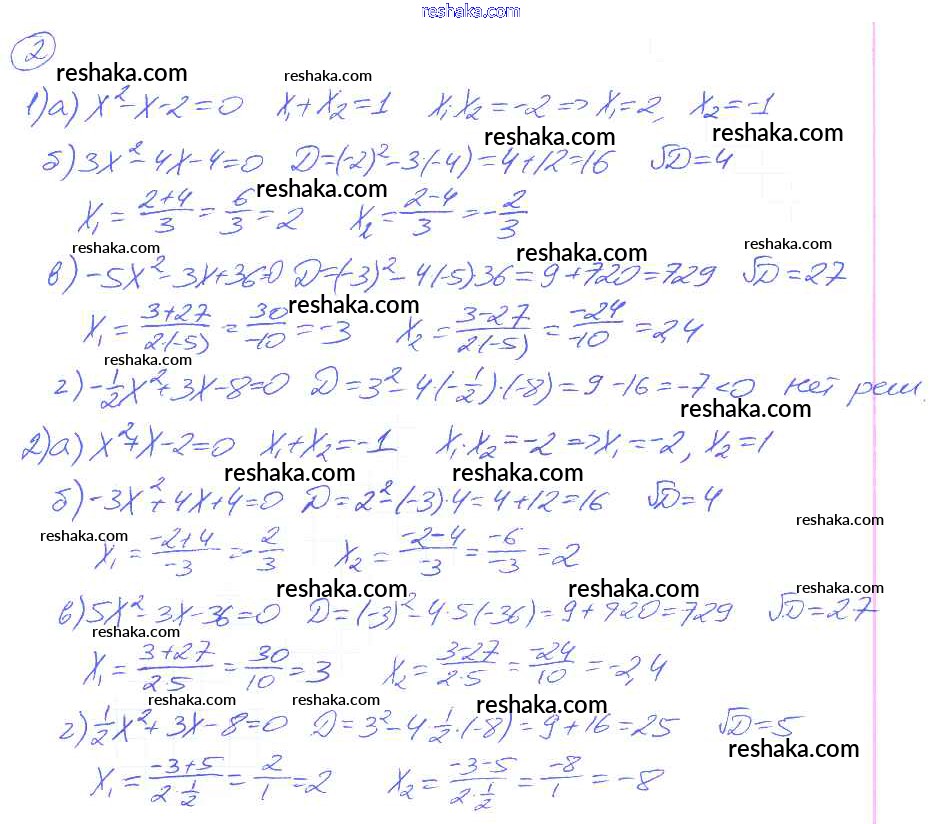 reshaka.com
2
reshaka.com reshaka.com
1) а) x² - x - 2 = 0 x₁ + x₂ = 1 x₁·x₂ = -2 => x₁ = 2, x₂ = -1
reshaka.com reshaka.com
б) 3x² - 4x - 4 = 0 D = (-2)² - 3·(-4) = 4 + 12 = 16 √D = 4
reshaka.com
x₁ = (2+4)/3 = 6/3 = 2 x₂ = (2-4)/3 = -2/3
reshaka.com reshaka.com reshaka.com
в) -5x² - 3x + 36 = 0 D = (-3)² - 4(-5)36 = 9 + 720 = 729 √D = 27
reshaka.com reshaka.com
x₁ = (3+27)/2(-5) = 30/-10 = -3 x₂ = (3-27)/2(-5) = -24/-10 = 24
reshaka.com
г) -1/2x² + 3x - 8 = 0 D = 3² - 4(-1/2)·(-8) = 9 - 16 = -7 < 0 нет реш.
reshaka.com
2) а) x² + x - 2 = 0 x₁ + x₂ = -1 x₁·x₂ = -2 => x₁ = -2, x₂ = 1
reshaka.com reshaka.com
б) -3x² + 4x + 4 = 0 D = 2² - (-3)·4 = 4 + 12 = 16 √D = 4
reshaka.com reshaka.com
x₁ = (-2+4)/-3 = -2/3 x₂ = (-2-4)/-3 = -6/-3 = 2
reshaka.com reshaka.com reshaka.com
в) 5x² - 3x - 36 = 0 D = (-3)² - 4·5(-36) = 9 + 720 = 729 √D = 27
reshaka.com
x₁ = (3+27)/2·5 = 30/10 = 3 x₂ = (3-27)/2·5 = -24/10 = -2,4
reshaka.com reshaka.com reshaka.com
г) 1/2x² + 3x - 8 = 0 D = 3² - 4·1/2·(-8) = 9 + 16 = 25 √D = 5
reshaka.com
x₁ = (-3+5)/2·1/2 = 2/1 = 2 x₂ = (-3-5)/2·1/2 = -8/1 = -8